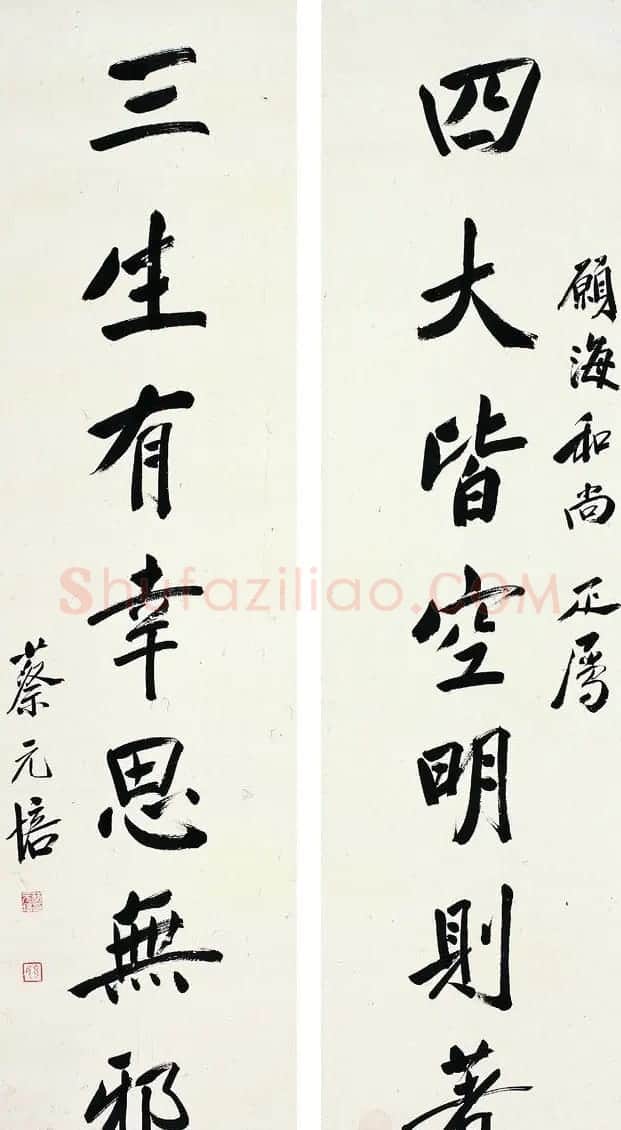 願海和尚 正屬
四大皆空明則著
三生有幸思無邪
蔡元培
Shufaziliao.COM